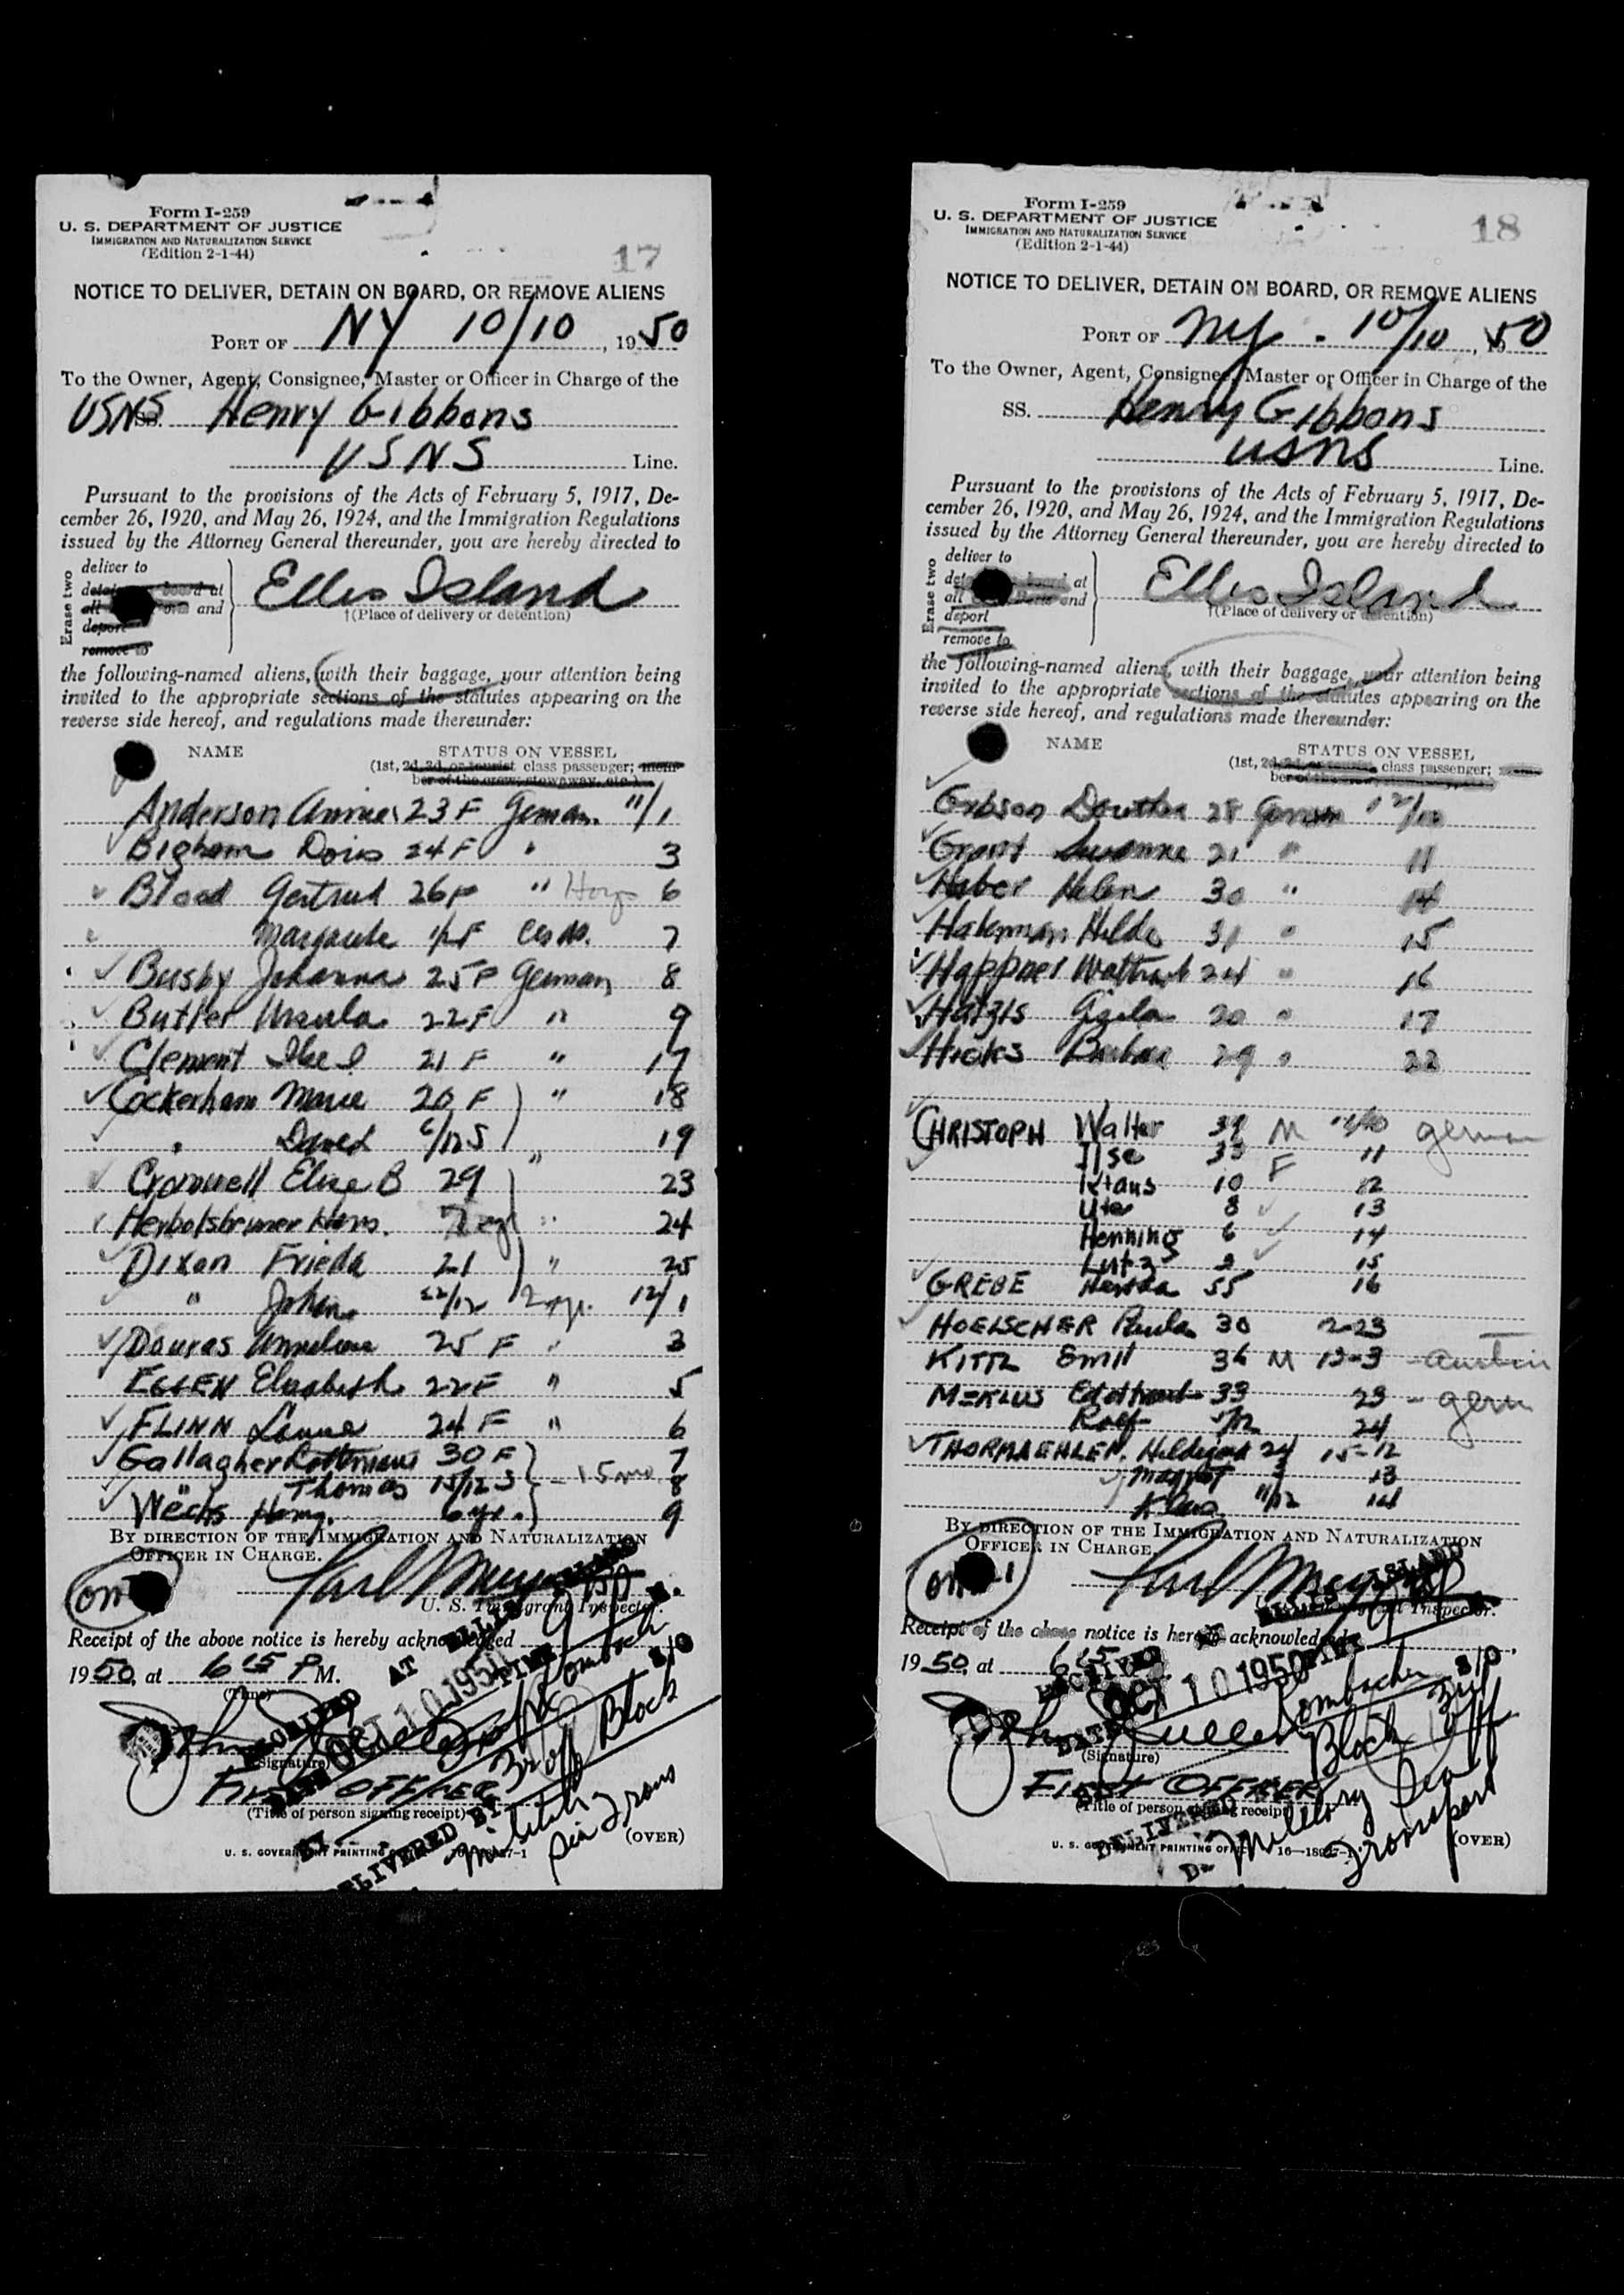 Form I-259
U. S. DEPARTMENT OF JUSTICE
IMMIGRATION AND NATURALIZATION SERVICE
(Edition 2-1-44)
17
NOTICE TO DELIVER, DETAIN ON BOARD, OR REMOVE ALIENS
PORT OF NY 10/10, 1950
To the Owner, Agent, Consignee, Master or Officer in Charge of the
USNS Henry Gibbons
USNS Line.
Pursuant to the provisions of the Acts of February 5, 1917, De-
cember 26, 1920, and May 26, 1924, and the Immigration Regulations
issued by the Attorney General thereunder, you are hereby directed to
Erase two
deliver to
board at
all and
deport
remove to
Ellis Island
†(Place of delivery or detention)
the following-named aliens, with their baggage, your attention being
invited to the appropriate sections of the statutes appearing on the
reverse side hereof, and regulations made thereunder:
NAME STATUS ON VESSEL
(1st, 2d, 3d, or tourist class passenger; mem-
ber of the crew, stowaway, etc.)
Anderson 23 F German 11/1
Bigham Doris 24 F " 3
Blood Gertrud 26 F " 6
1/2 F 7
Busby Johanna 25 F German 8
Butler Ursula 22 F " 9
Clement 21 F " 17
Cockerham Marie 20 F " 18
" David 6/12 S 19
Cromwell Elise B 29 " 23
24
Dixon Frieda 21 " 25
" John 22/12 12/1
25 F " 3
Elisabeth 22 F " 5
FLINN 24 F " 6
Gallagher 30 F 7
Thomas 15/12 S - 15 mo 8
6 yr. 9
BY DIRECTION OF THE IMMIGRATION AND NATURALIZATION
OFFICER IN CHARGE.
U. S. Immigrant Inspector.
Receipt of the above notice is hereby acknowledged
1950, at 6 15 P M.
(Time)
RECEIVED AT ELLIS ISLAND
DATE OCT 10 1950 TIME
(Signature)
3r off Block
FIRST OFFICER
(Title of person signing receipt)
DELIVERED BY
Military Sea Trans
(OVER)
U. S. GOVERNMENT PRINTING OFFICE
Form I-259
U. S. DEPARTMENT OF JUSTICE
IMMIGRATION AND NATURALIZATION SERVICE
(Edition 2-1-44)
18
NOTICE TO DELIVER, DETAIN ON BOARD, OR REMOVE ALIENS
PORT OF NY. 10/10, 1950
To the Owner, Agent, Consignee, Master or Officer in Charge of the
SS. Henry Gibbons
USNS Line.
Pursuant to the provisions of the Acts of February 5, 1917, De-
cember 26, 1920, and May 26, 1924, and the Immigration Regulations
issued by the Attorney General thereunder, you are hereby directed to
Erase two
deliver to
board at
all and
deport
remove to
Ellis Island
†(Place of delivery or detention)
the following-named aliens, with their baggage, your attention being
invited to the appropriate sections of the statutes appearing on the
reverse side hereof, and regulations made thereunder:
NAME STATUS ON VESSEL
(1st, 2d, 3d, or tourist class passenger; mem-
ber of the crew, stowaway, etc.)
Gibson 28 German 12/10
Grant Susanne 21 " 11
Haber Helen 30 " 14
Hilde 31 " 15
24 " 16
Gisela 20 " 17
Hicks Barbara 29 " 22
CHRISTOPH Walter 39 M German
Ilse 33 F 11
Klaus 10 12
8 13
Henning 6 14
Lutz 2 15
GREBE Hertha 55 16
HOELSCHER Paula 30 2-23
Emil 36 M 12-3
33 23 - germ
Rolf 24
THORMAEHLEN. Hildegard 24 15-12
Margot 3 13
Klaus 11/12 14
BY DIRECTION OF THE IMMIGRATION AND NATURALIZATION
OFFICER IN CHARGE.
Inspector.
Receipt of the above notice is hereby acknowledged
1950, at 6 15
RECEIVED AT ELLIS ISLAND
DATE OCT 10 1950 TIME
(Signature)
Block 3rd Off
FIRST OFFICER
(Title of person signing receipt)
DELIVERED BY
Military Sea Transport
(OVER)
U. S. GOVERNMENT PRINTING OFFICE